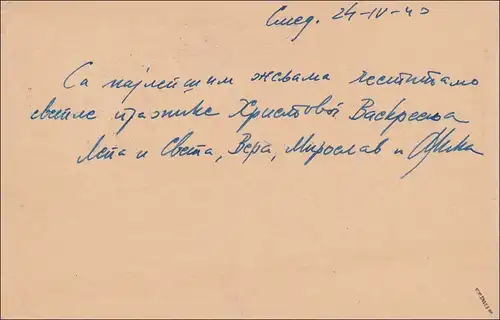 Смед. 24-IV-43
Са најлепшим жељама честитамо
светле празнике Христовог Васкрсења
Лепа и Света, Вера, Мирослав и